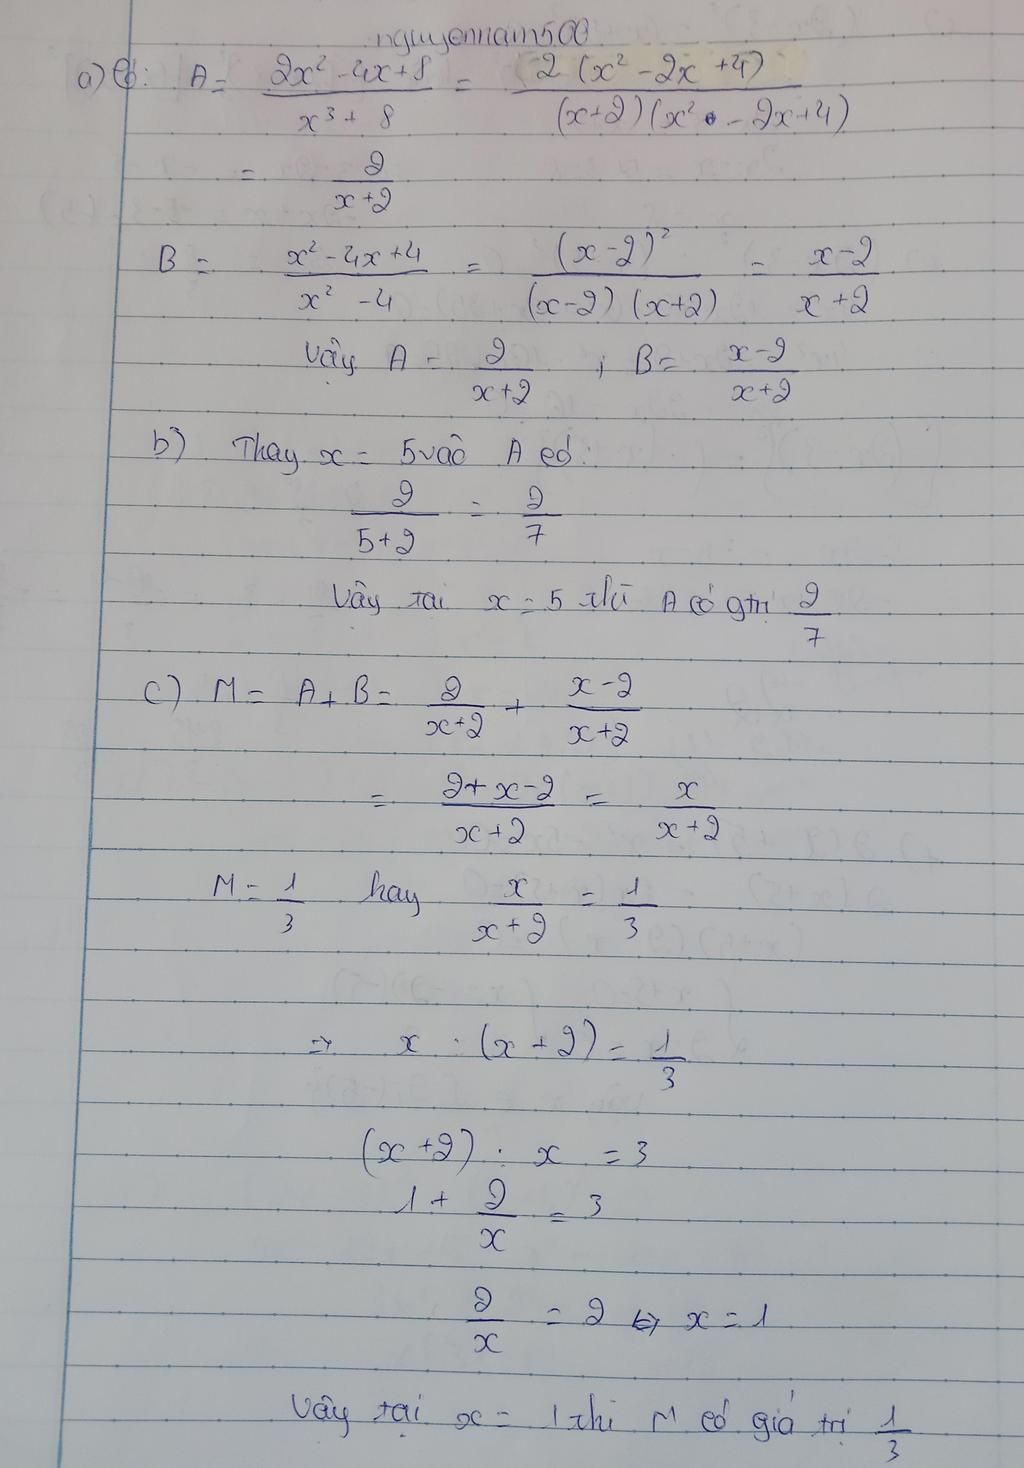 nguyennam500
a) Có: A = (2x² - 4x + 8)/(x³ + 8) = 2(x² - 2x + 4)/((x+2)(x² - 2x + 4))
= 2/(x+2)
B = (x² - 4x + 4)/(x² - 4) = (x-2)²/((x-2)(x+2)) = (x-2)/(x+2)
Vậy A = 2/(x+2) ; B = (x-2)/(x+2)
b) Thay x = 5 vào A có:
2/(5+2) = 2/7
Vậy tại x = 5 thì A có gtrị 2/7
c) M = A + B = 2/(x+2) + (x-2)/(x+2)
= (2+x-2)/(x+2) = x/(x+2)
M = 1/3 hay x/(x+2) = 1/3
⇒ x : (x+2) = 1/3
(x+2) : x = 3
1 + 2/x = 3
2/x = 2 ⇔ x = 1
Vậy tại x = 1 thì M có giá trị 1/3